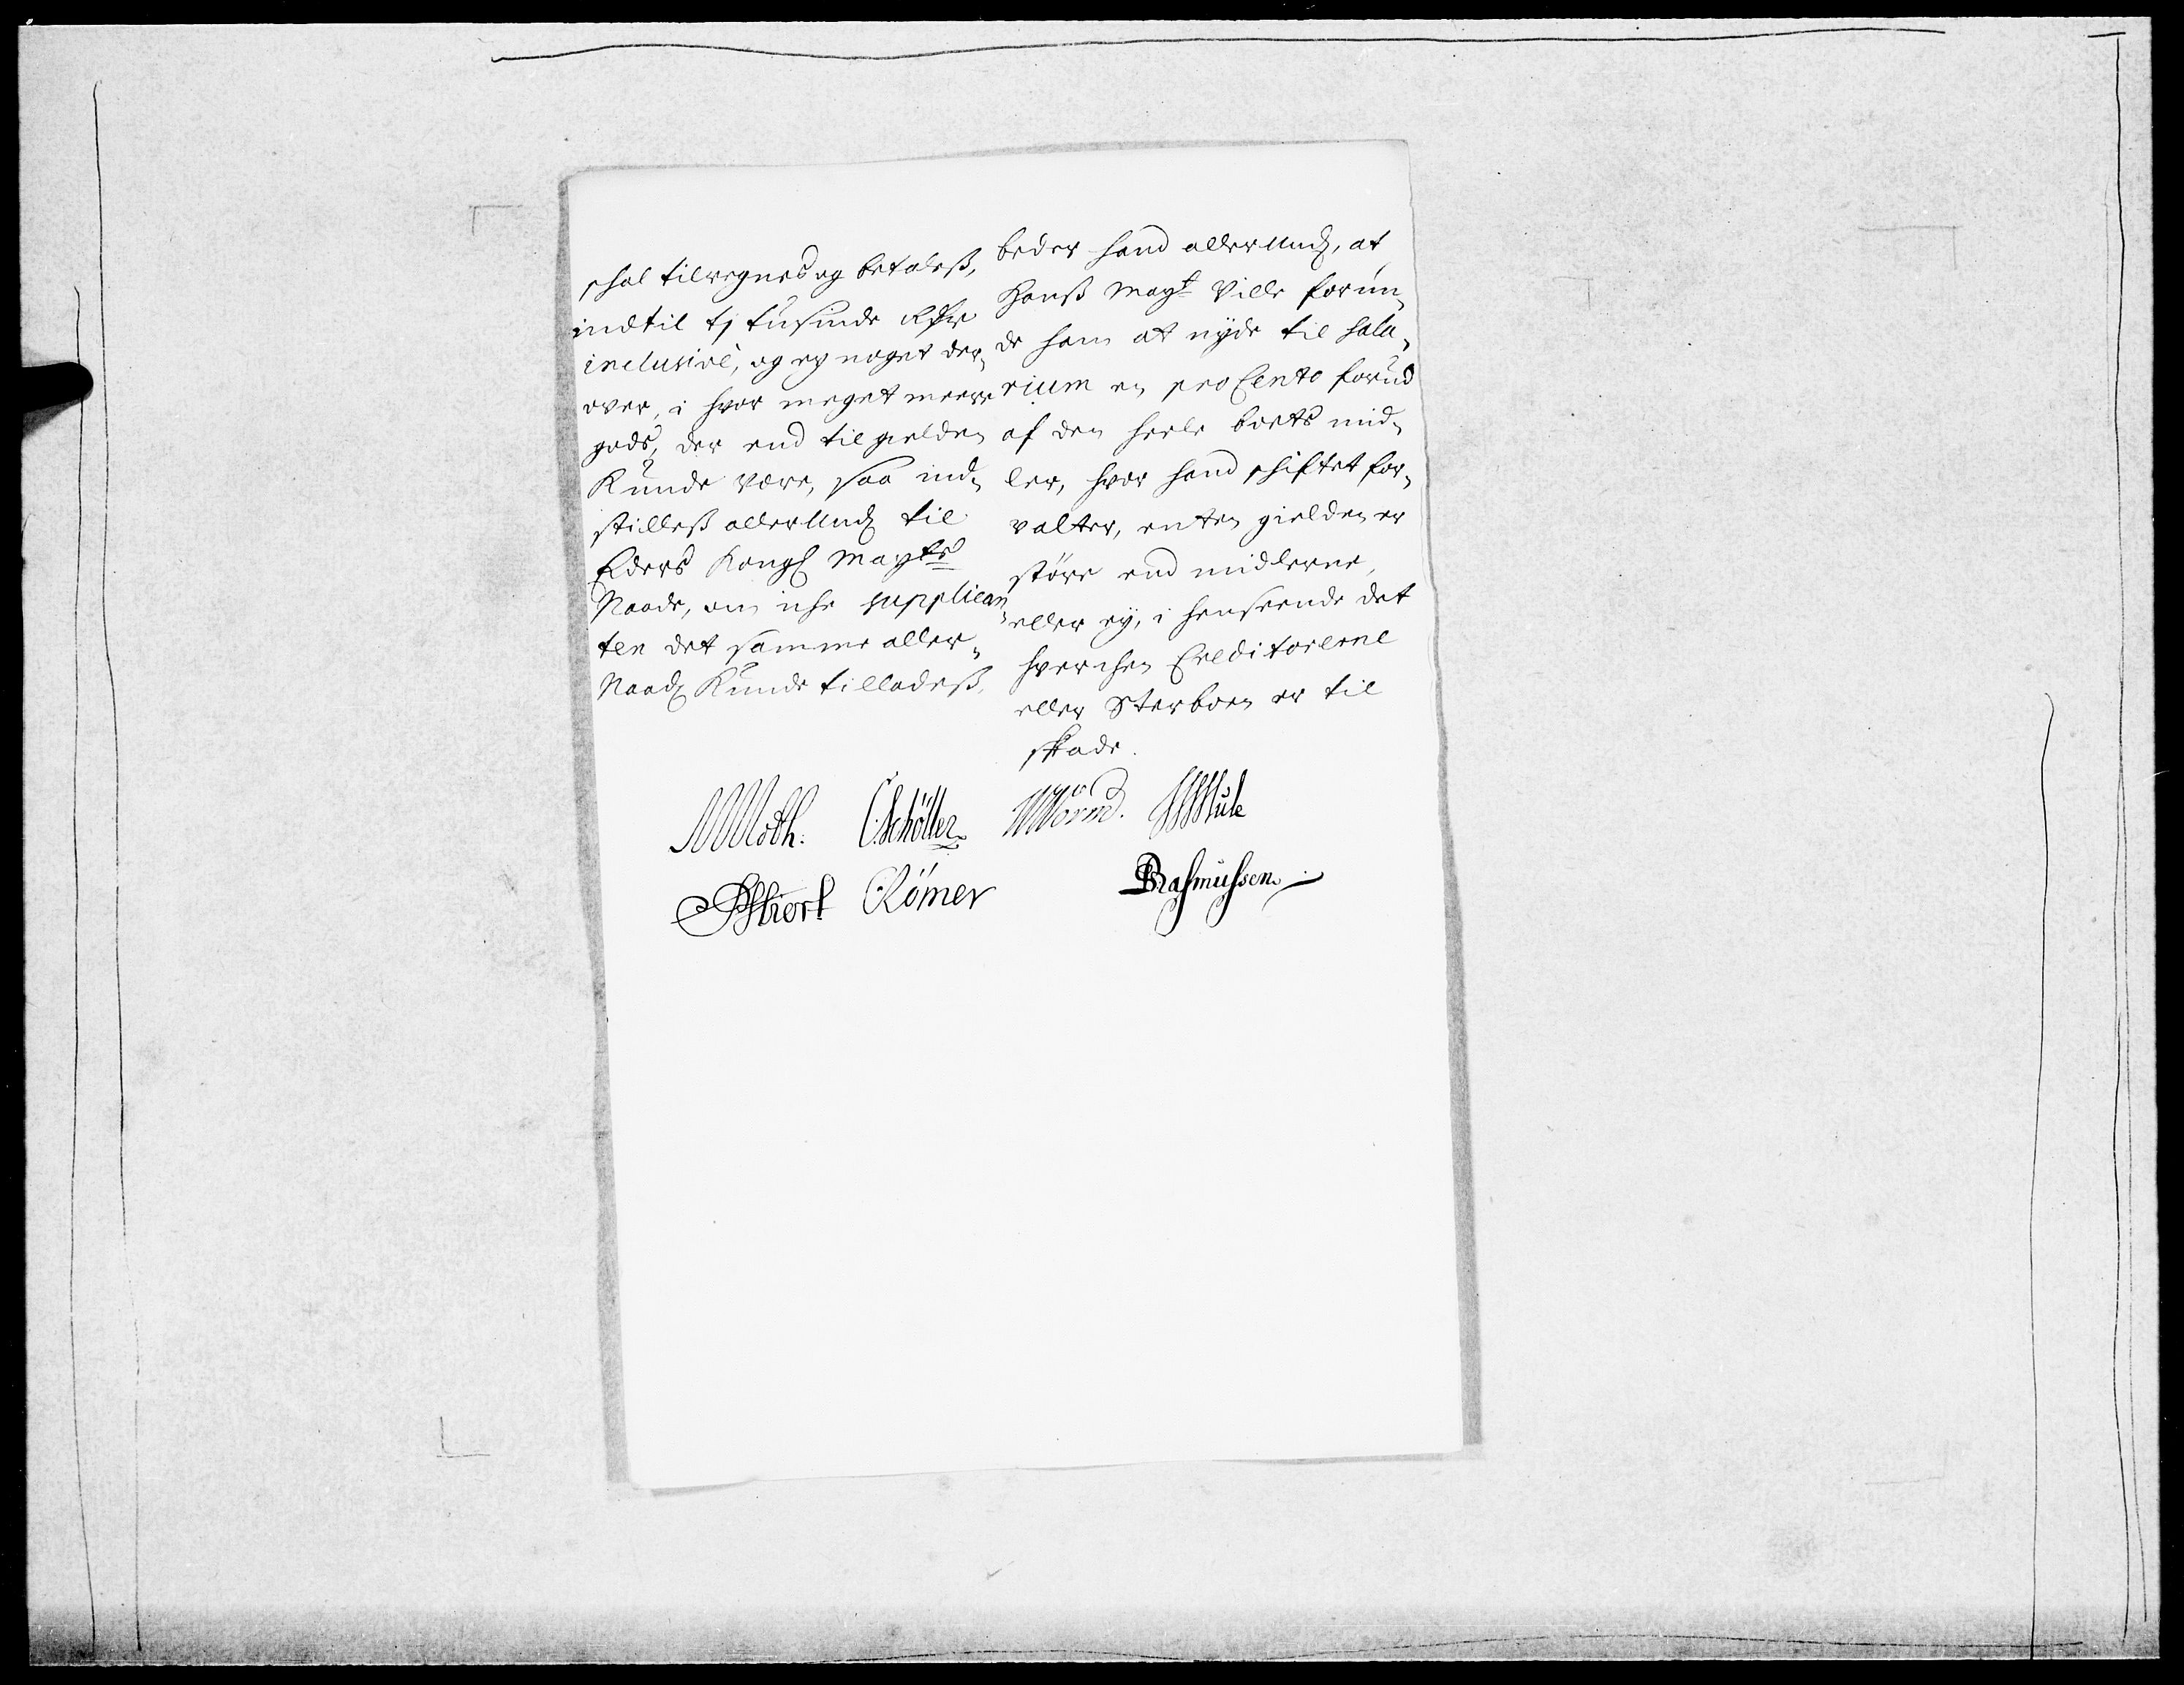 skal tilregnes og betaless,
indtil ti tusinde Rdr
inclusivè, og ej noget der„
over, i hvor meget meere
gods, der end til gielden
Kunde være, saa ind„
stilless allerUnd til
Eders Kongl Maytz
Naade, om icke supplican„
ten det samme aller„
Naad Kunde tilladess,
beder hand allerUnd, at
Hanss Mayt Ville forun„
de ham at nyde til sala„
rium en pro Cento forud
af den heele boets mid„
ler, hvor hand skiftet for„
valter, enten gielden er
støre end midlerne,
eller ej, i henseende det
hverchen Creditorerne
eller Sterboen er til
skade.
MMoth. CSchöller WWorm. Hule
Hiort CRömer Rasmussen.